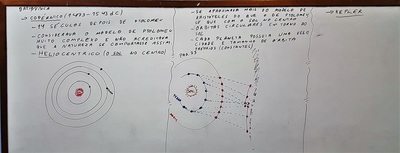 → COPÉRNICO (1473-1543 DC)
- 14 SÉCULOS DEPOIS DE PTOLOMEU
- CONSIDERAVA O MODELO DE PTOLOMEU
MUITO COMPLEXO E NÃO ACREDITAVA
QUE A NATUREZA SE COMPORTASSE ASSIM
- HELIOCÊNTRICO (O SOL NO CENTRO)
- SE APROXIMAVA MAIS DO MODELO DE
ARISTÓTELES DO QUE O DE PTOLOMEU
SÓ QUE COM O SOL NO CENTRO
- ÓRBITAS CIRCULARES EM TORNO DO
SOL
- CADA PLANETA POSSUIA UMA VELO
CIDADE E TAMANHO DE ÓRBITA
(CONSTANTES)
→ KEPLER
SOL
TERRA
MARTE